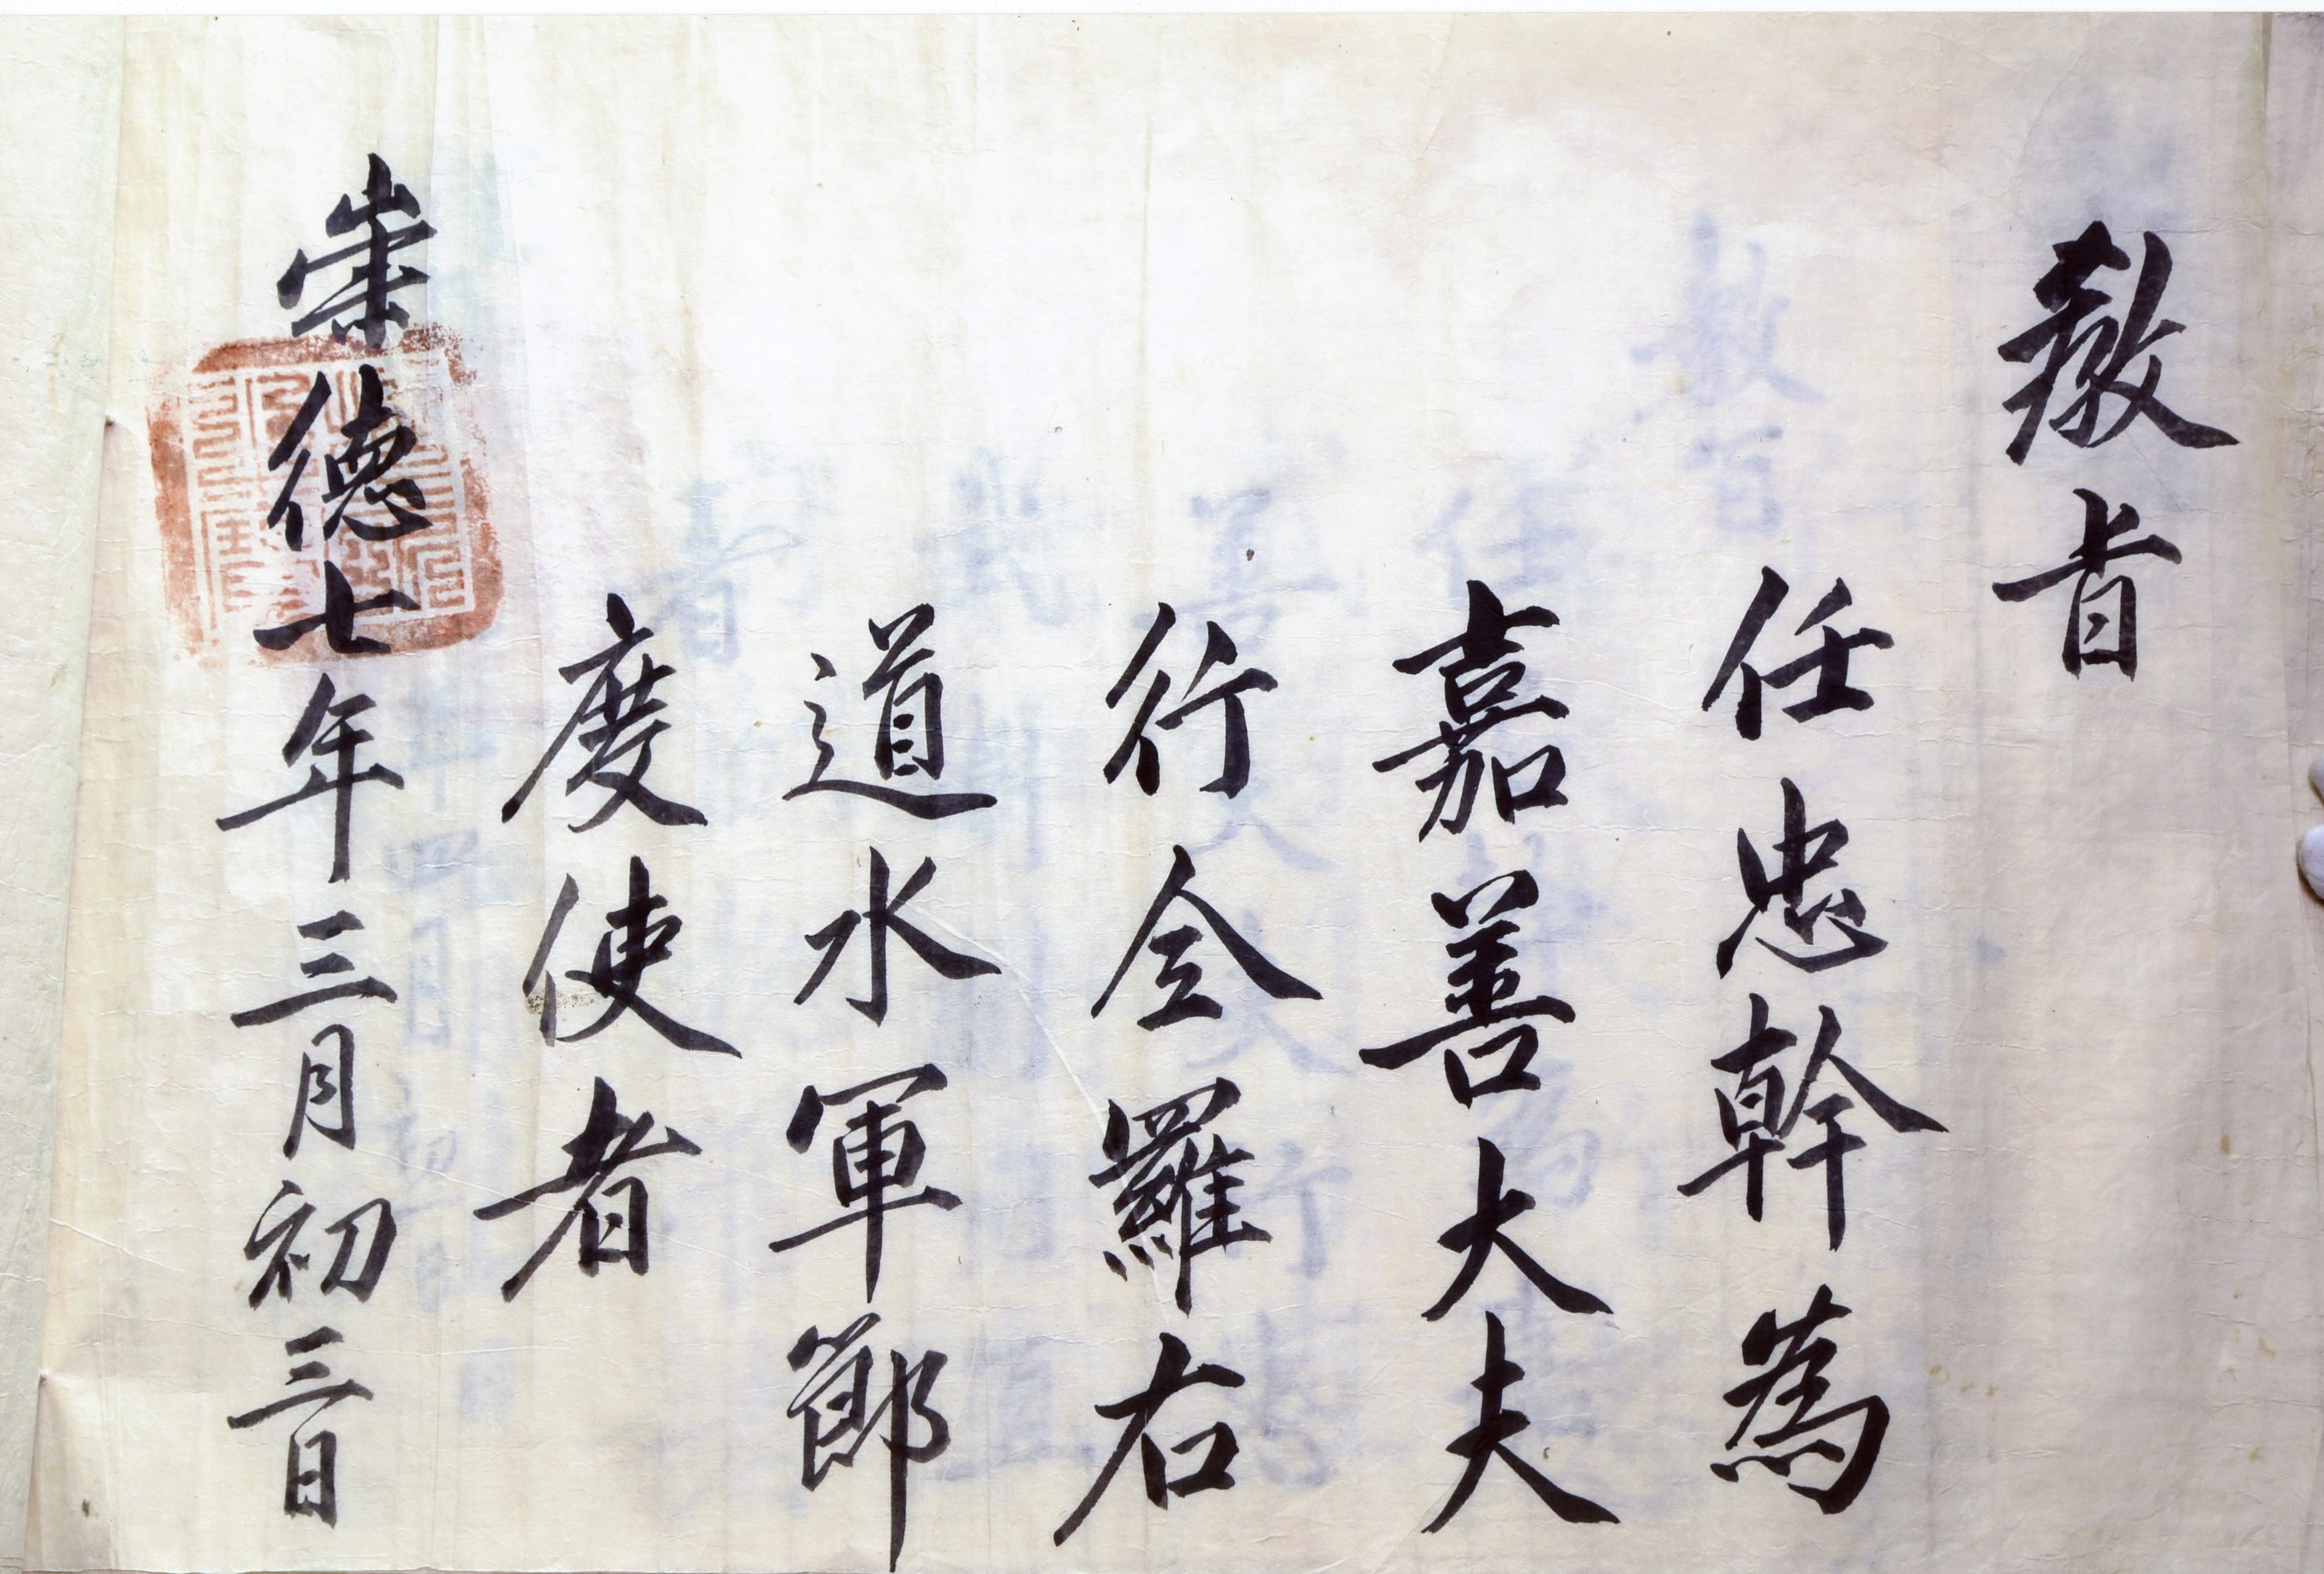 教旨
任忠幹爲
嘉善大夫
行全羅右
道水軍節
度使者
崇德七年三月初三日